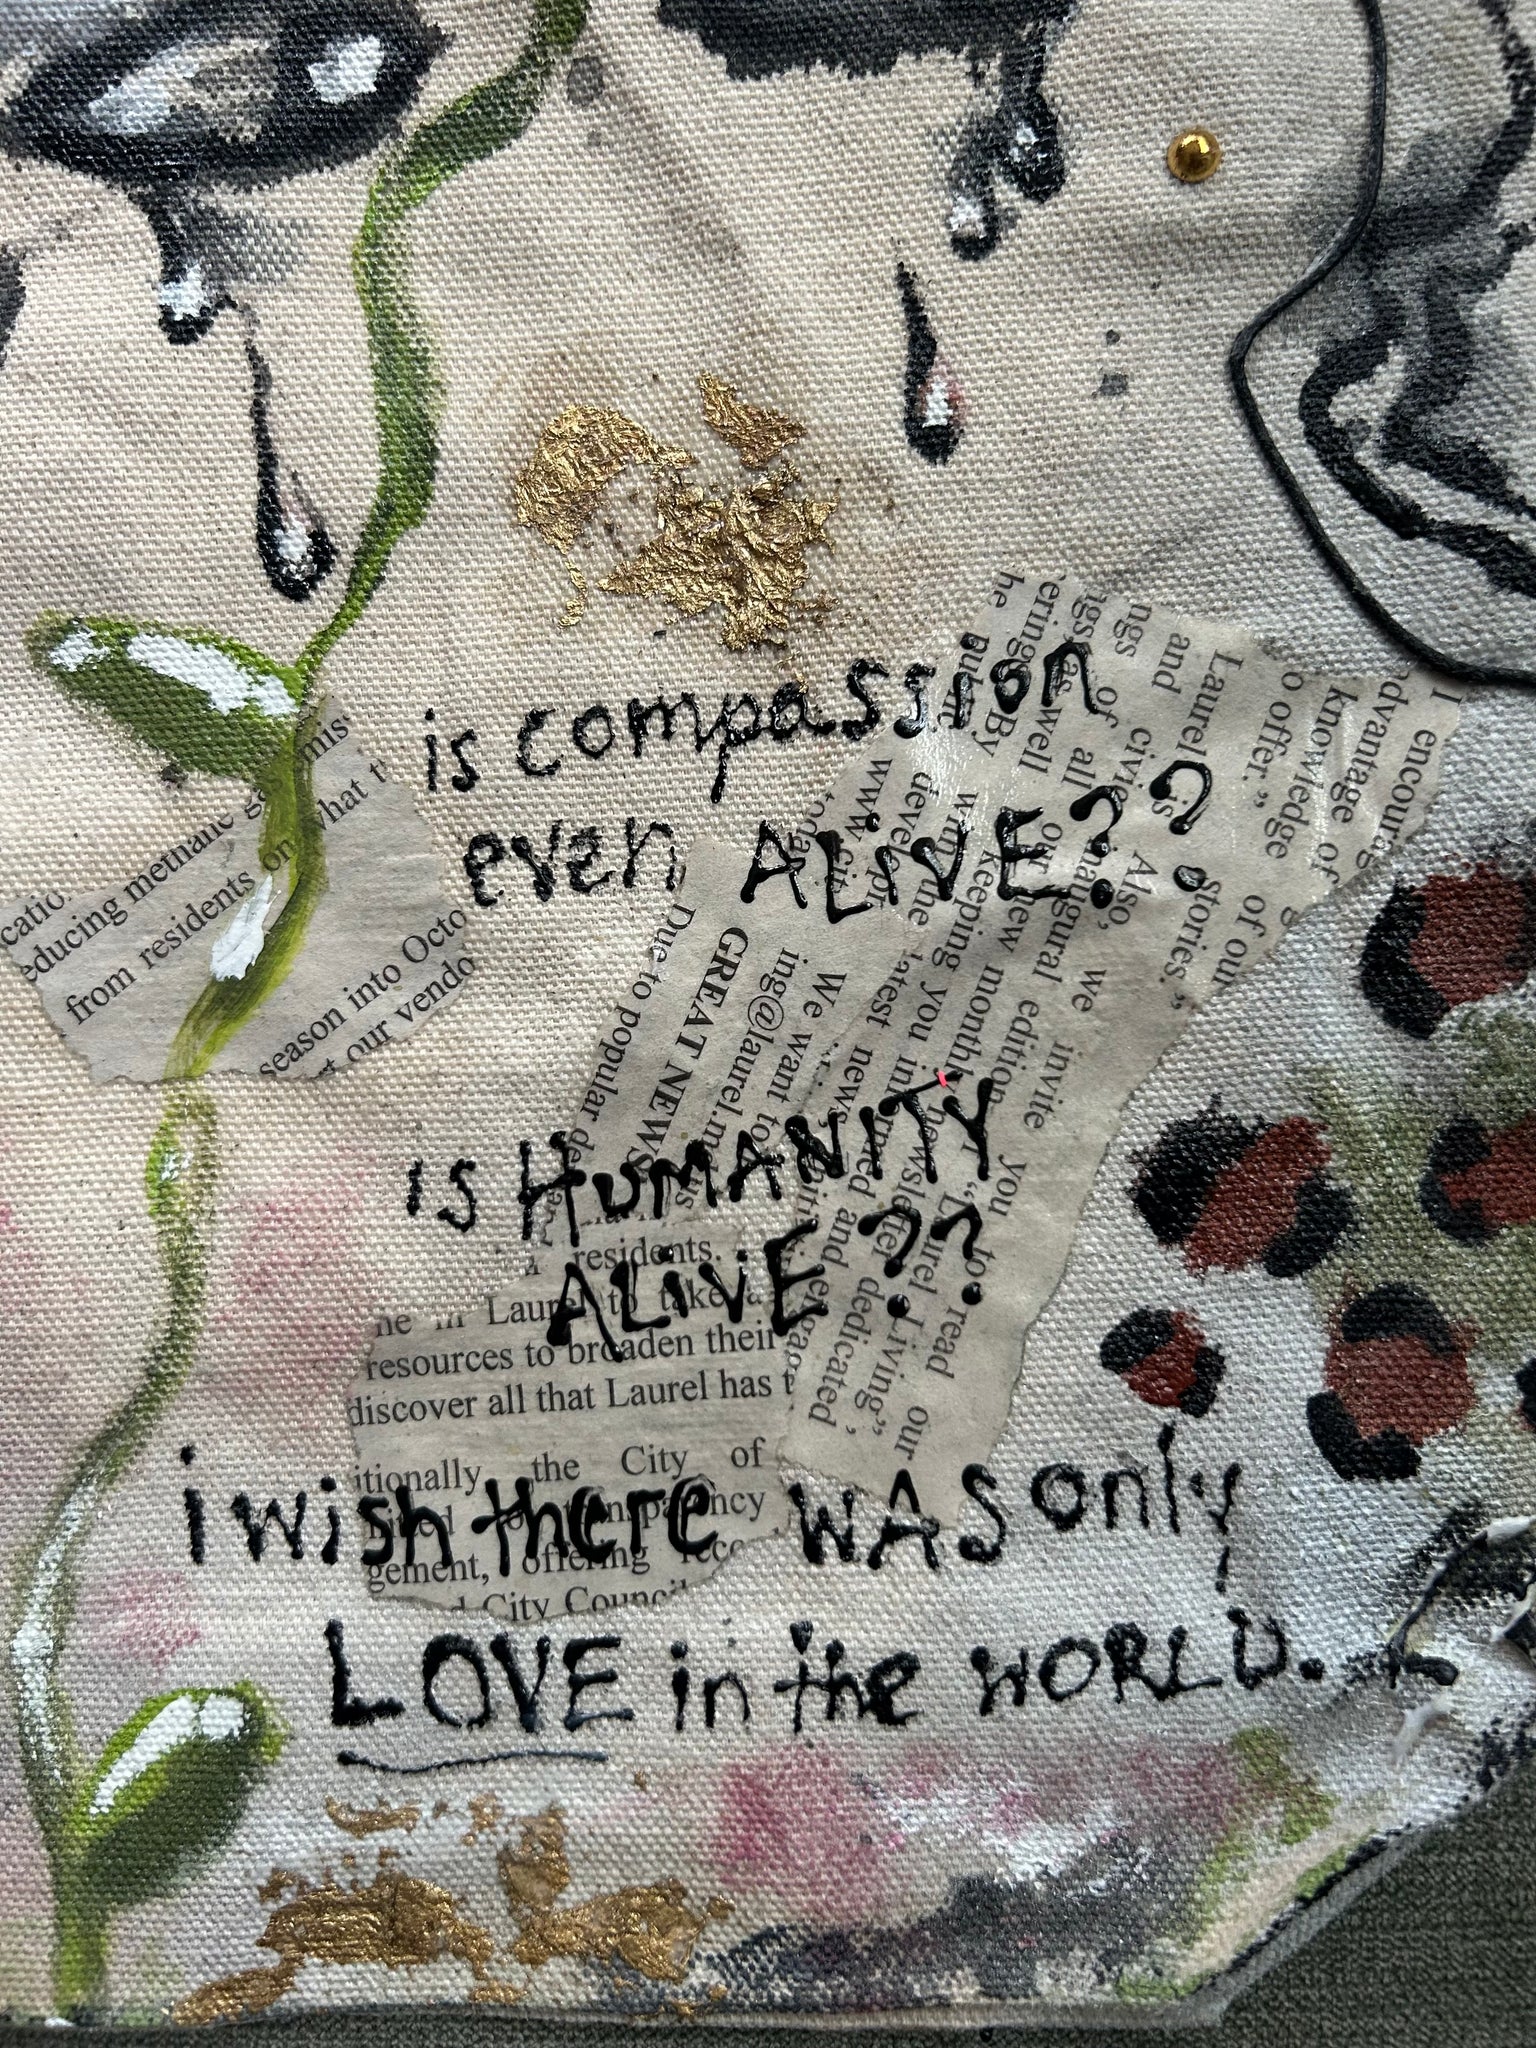 is compassion
even ALiVE??
is HUMANITY
ALiVE??
i wish there WAS only
LOVE in the WORLD.
educing methane
from residents on
what t
season into Octo
our vendo
Due to popular de
GREAT NEWS
ing@laurel.md.us
We want to
latest news,
keeping you informed and
our new monthly newsletter dedicated
inaugural edition of "Laurel Living",
Also, we invite you to read our
stories."
and civic
Laurel is
to offer,"
knowledge of our
advantage of
I encourag
residents.
me in Laurel to take a
resources to broaden their
discover all that Laurel has t
itionally the City of
gement, offering
City Council